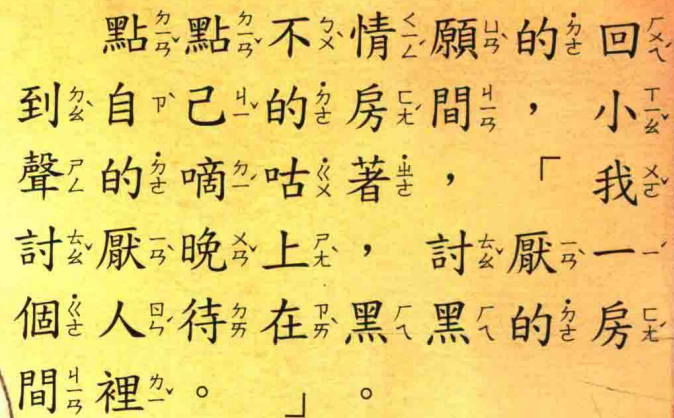 點點不情願的回
到自己的房間，小
聲的嘀咕著，「我
討厭晚上，討厭一
個人待在黑黑的房
間裡。」。